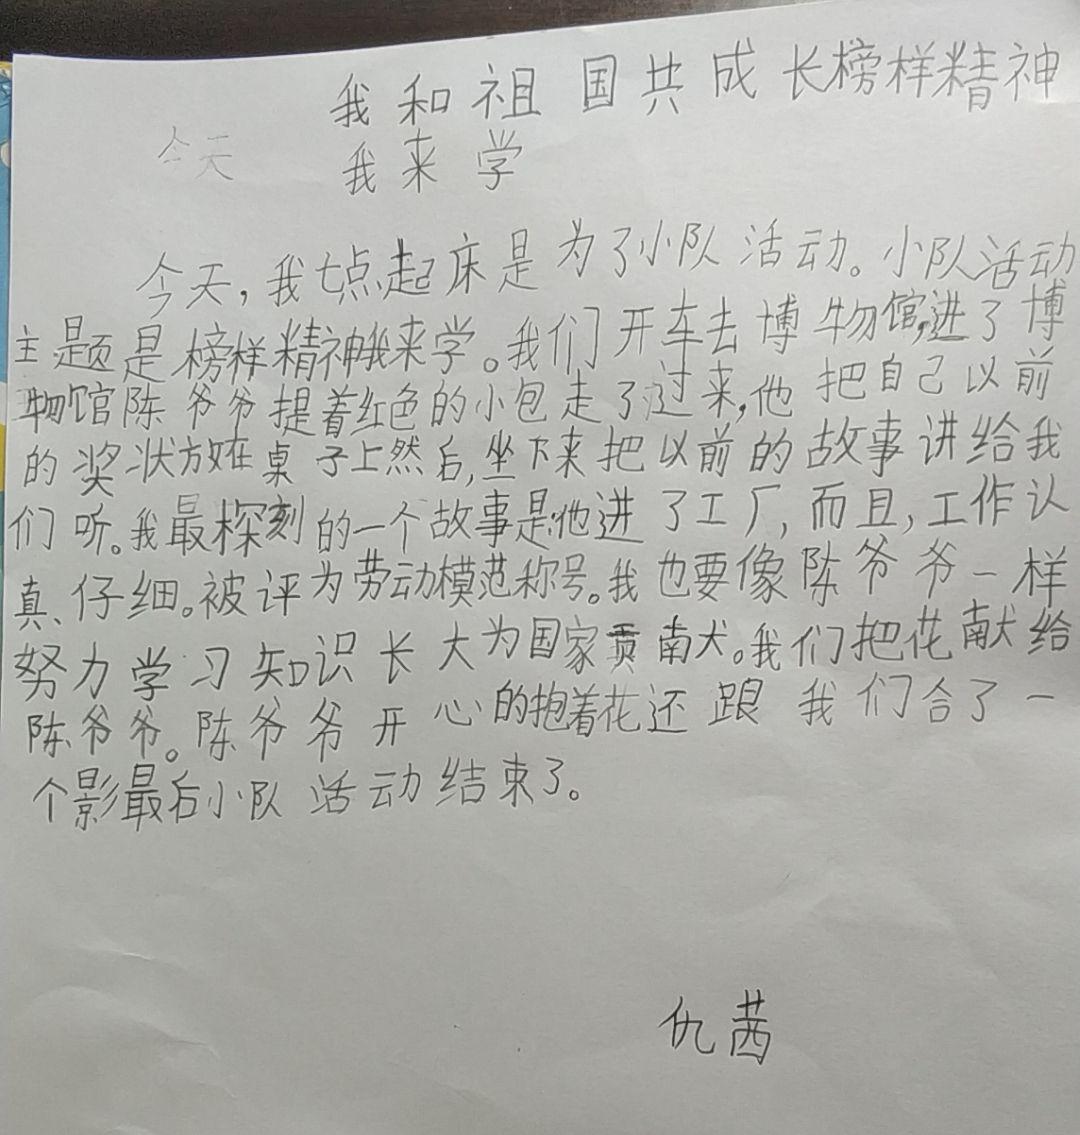 我和祖国共成长榜样精神
今天 我来学
今天,我七点起床是为了小队活动。小队活动
主题是榜样精神我来学。我们开车去博物馆,进了博
物馆陈爷爷提着红色的小包走了过来,他把自己以前
的奖状放在桌子上然后,坐下来把以前的故事讲给我
们听。我最探刻的一个故事是:他进了工厂,而且,工作认
真、仔细。被评为劳动模范称号。我也要像陈爷爷一样
努力学习知识长大为国家贡南犬。我们把花献给
陈爷爷。陈爷爷开心的抱着花还跟我们合了一
个影最后小队活动结束了。
仇茜